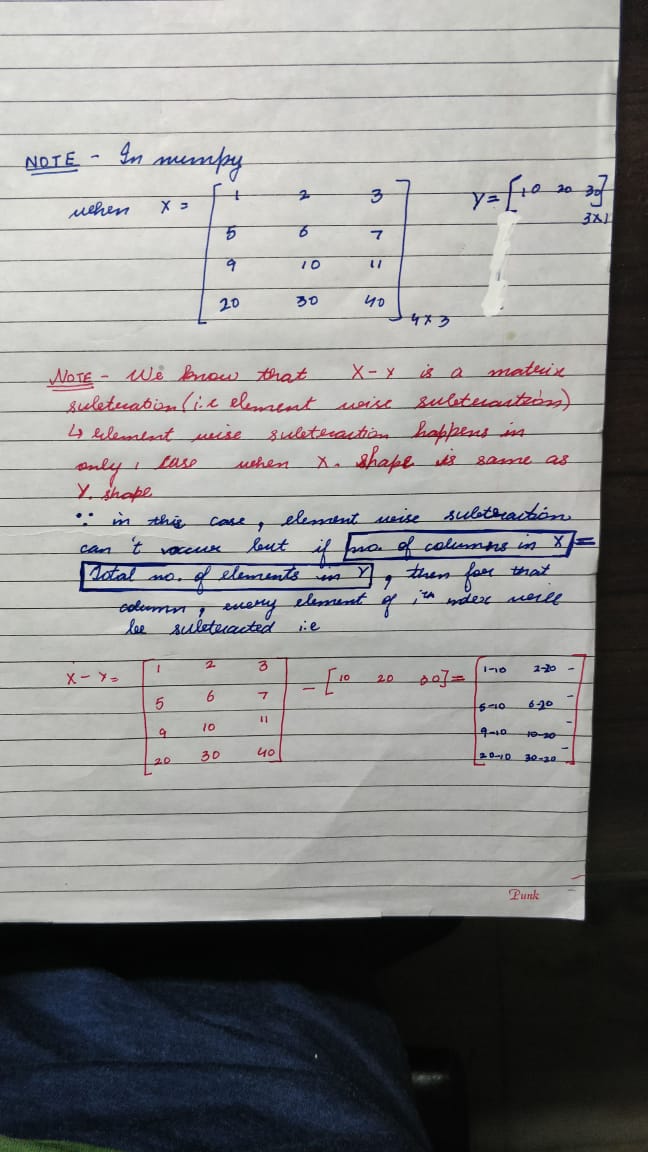 NOTE - In numpy
when X = [ 1 2 3 Y = [10 20 30]
3x1
5 6 7
9 10 11
20 30 40 ] 4x3
NOTE - We know that X-Y is a matrix
subtraction (i.e element wise subtraction)
↳ element wise subtraction happens in
only, case when X. shape is same as
Y. shape
∵ in this case, element wise subtraction
can't occur but if no. of columns in X =
Total no. of elements in Y, then for that
column, every element of ith index will
be subtracted i.e
X - Y = [ 1 2 3 - [10 20 30] = [ 1-10 2-20 -
5 6 7 5-10 6-20 -
9 10 11 9-10 10-20 -
20 30 40 ] 20-10 30-20 - ]
Punk